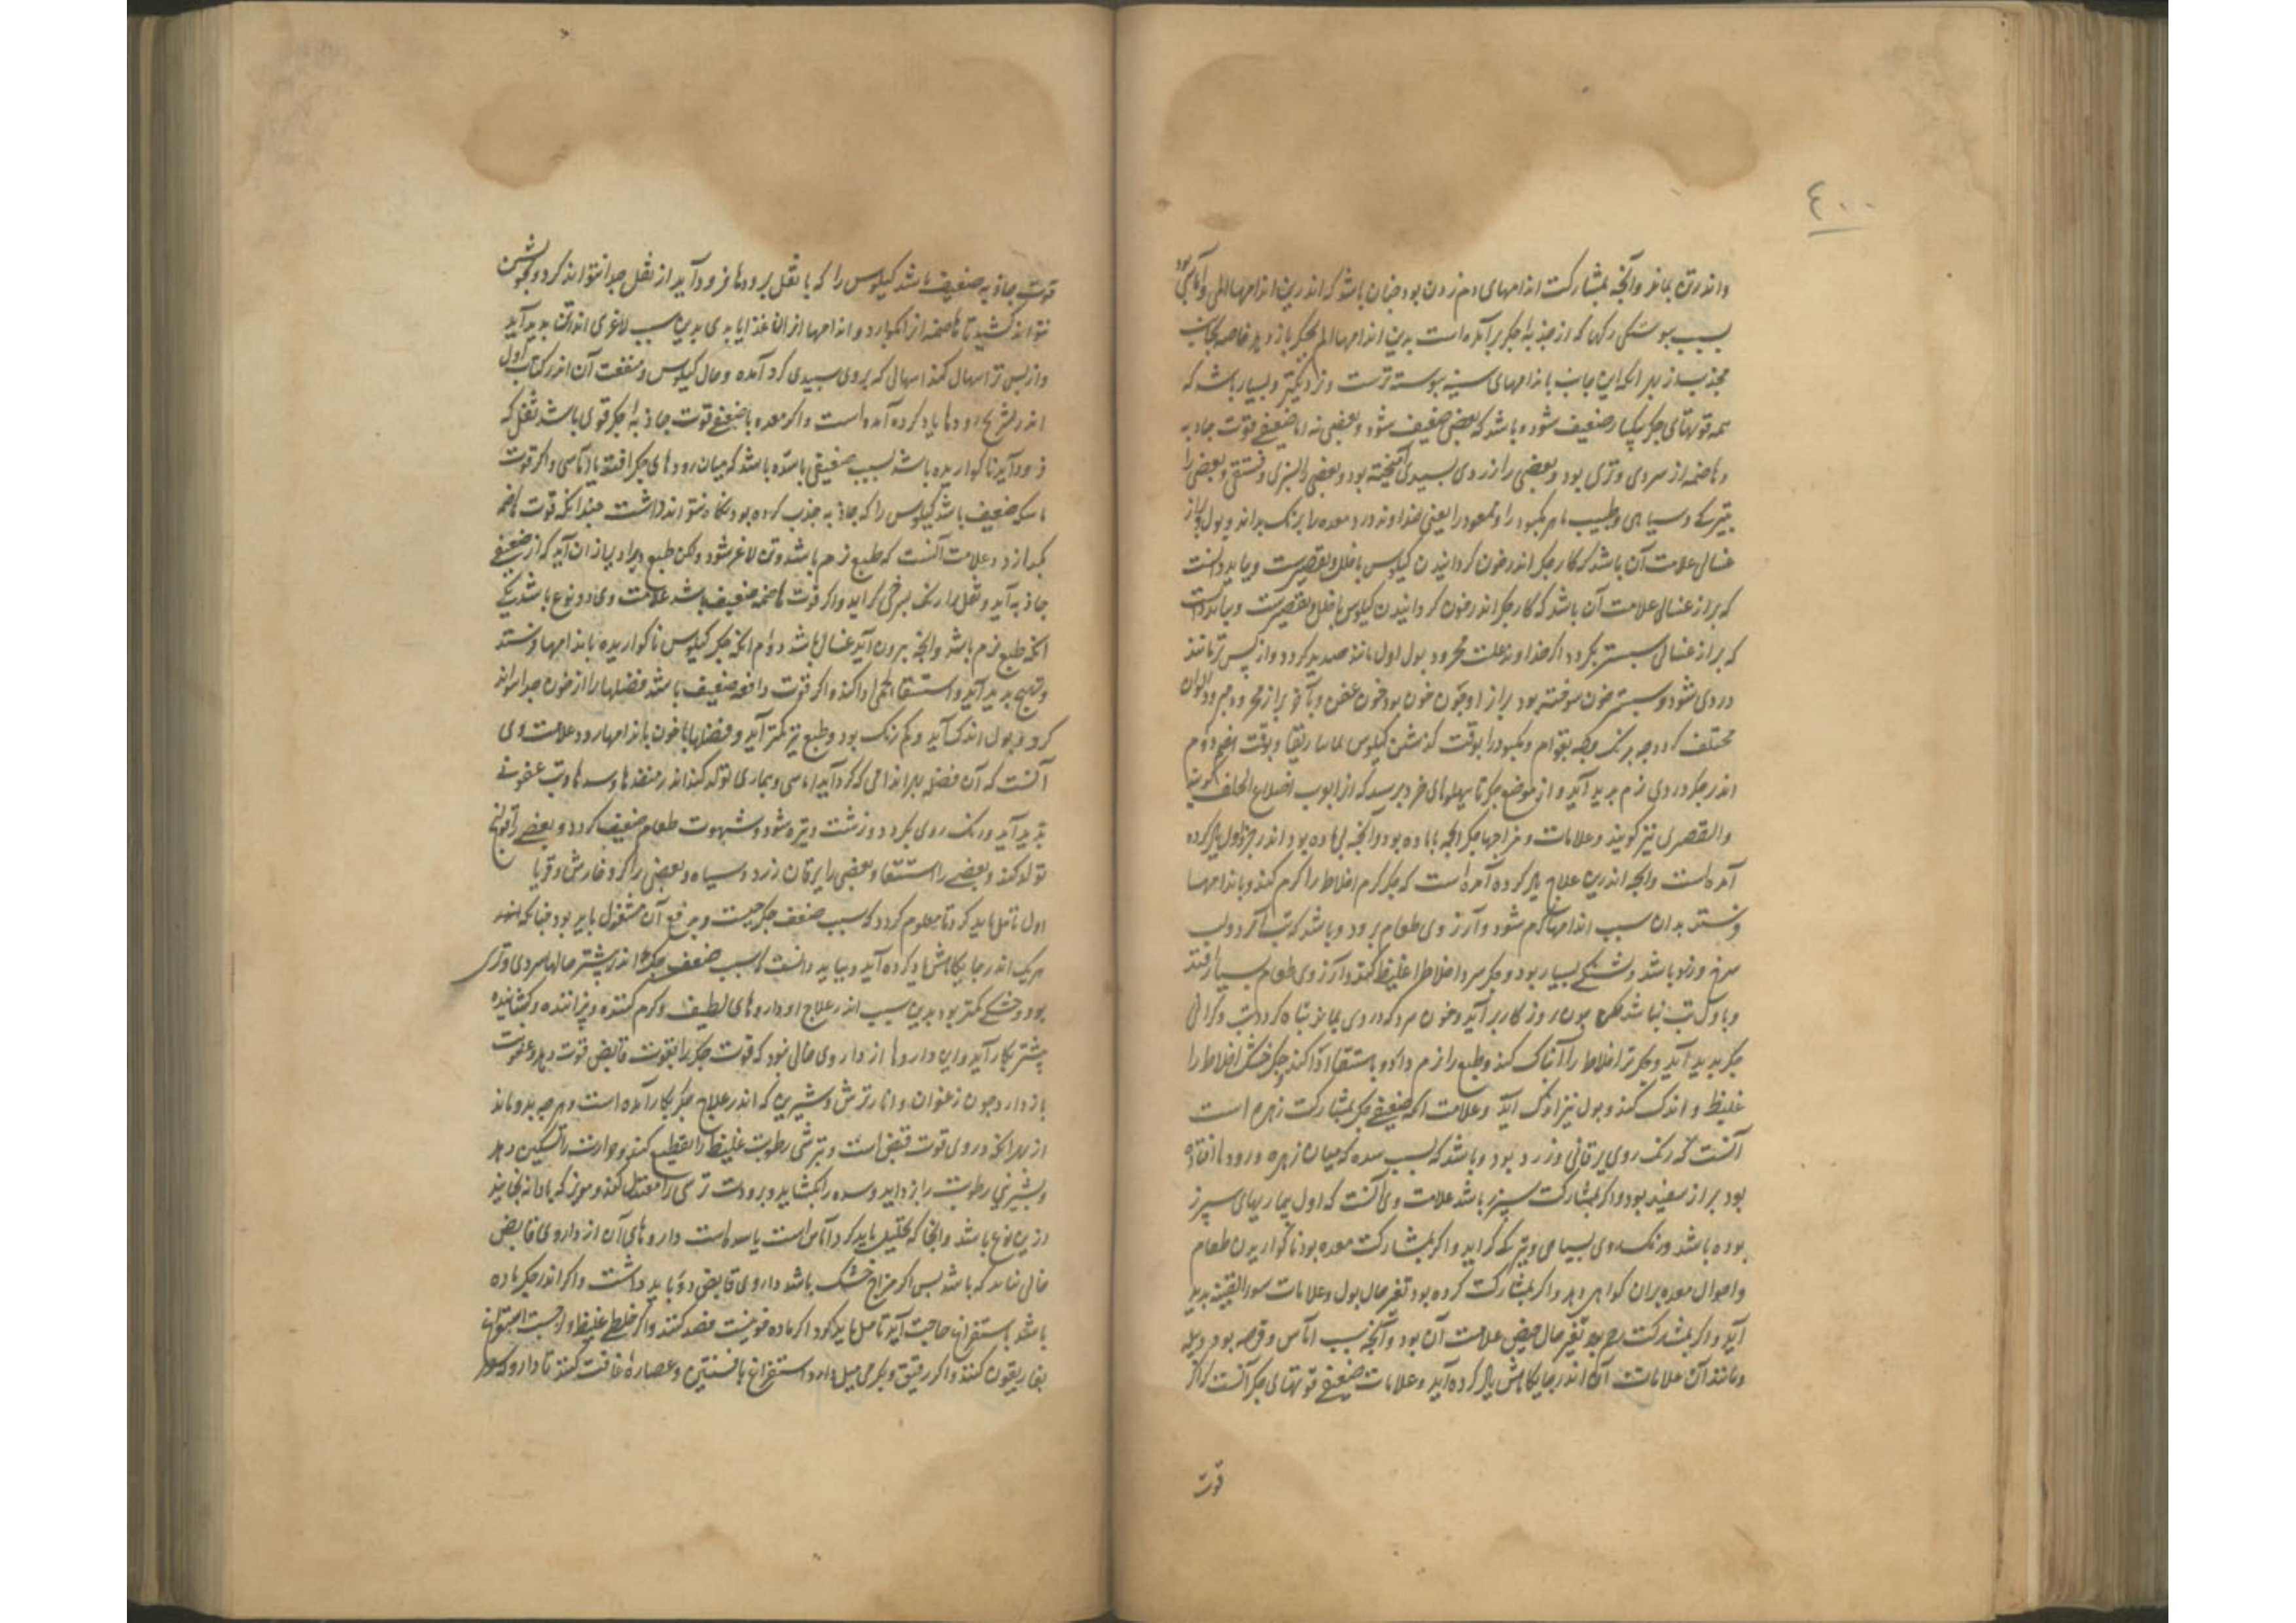 ٤٠٠
واندر تن بماند وآنچه بمشارکت اندامهای دم زدن بود چنان باشد که اندرین اندامها المی وآماسی بود
بسبب پیوستگی رکها که از حدبه جکر برآمده است بدین اندامها الم بجکر باز دهد خاصه بجانب
محدب از بهر انکه این جانب باندامهای سینه پیوسته ترست ونزدیکتر وبسیار باشد که
همه قوتهای جکر بیکبار ضعیف شود وباشد که بعضی ضعیف شود وبعضی نه اما ضعیفی قوت جاذبه
وهاضمه از سردی وتری بود وبعضی را زردی بسپیدی آمیخته بود وبعضی را بسبزی وفستقی وبعضی را
بتیرکی وسیاهی وطبیب ماهر مکبود را وممعود را یعنی خداوند درد معده را برنک بداند وبول وبراز
غسالی علامت آن باشد که کار جکر اندر خون کردانیدن کیلوس باخلل وبتقصیرست وبباید دانست
که براز غسالی علامت آن باشد که کار جکر اندر خون کردانیدن کیلوس باخلل وبتقصیرست وبباید دانست
که براز غسالی سبستر بکردد اکر خداوند علت محرور بود بول اول مانند صدید کردد واز پس تر مانند
دردی شود وسبستر خون سوخته بود براز او چون خون بود خون عفن وبآخر براز محرور هم ودالوان
مختلف کردد چه برنک وچه بقوام ومکبود را بوقت کذشتن کیلوس بماساریقا وبوقت هضم دوم
اندر جکر دردی نرم پدید آید واز موضع جکر تا پهلوهای خرد برسد که از ابوب اضلاع الخلف کویند
والقصری نیز کویند وعلامات ومزاجها جکر انچه باماده بود وانچه بی ماده بود اندر جدول یاد کرده
آمده است وانچه اندرین علاج یاد کرده آمده است که جکر کرم اخلاط را کرم کند وباندامها
فرستد بدان سبب اندامها کرم شود وآرزوی طعام برود وباشد که تب آرد ولب
سرخ ورنو باشد وتشنکی بسیار بود وجکر سرد اخلاط را غلیظ کند وآرزوی طعام بسیار افتد
وباول تب نباشد لکن چون روزکار برآید وخون سرد که در وی بماند تباه کردد تب وکرانی
جکر پدید آید وجکر تر اخلاط را آبناک کند وطبع را نرم دارد وباستسقا ادا کند وجکر خشک اخلاط را
غلیظ واندک کند وبول نیز اندک آید وعلامت انکه ضعیفی جکر بمشارکت زهره است
آنست که رنک روی یرقانی وزرد بود وباشد که بسبب سده که میان زهره ورودها افتاده
بود براز سفید بود واکر بمشارکت سپرز باشد علامت وی آنست که اول بیماریهای سپرز
بوده باشد ورنک روی بسیاهی وتیرکی کراید واکر بمشارکت معده بود ناکواریدن طعام
واحوال معده بران کواهی دهد واکر بمشارکت کرده بود تغیر حال بول وعلامات سوء القنیه پدید
آید واکر بمشارکت رحم بود تغیر حال حیض علامت آن بود وآنچه بسبب آماس وقرحه بود ودبیله
ومانند آن علامات آن اندر جایکاهش یاد کرده آید وعلامات ضعیفی قوتهای جکر آنست که اکر
قوت
قوت جاذبه ضعیف باشد کیلوس را که با ثفل برودها فرود آید از ثفل جدا نتواند کرد وبخویشتن
نتواند کشید تا هاضمه از آن کوارد واندامها از ان غذا یابد پس بدین سبب لاغری اندر تن پدید آید
واز پس تر اسهال کند اسهالی که بروی سپیدی کرد آمده وحال کیلوس ومنفعت آن اندر کتاب اول
اندر تشریح رودها یاد کرده آمده است واکر معده باضعیفی قوت جاذبه جکر قوی باشد ثفل که
فرود آید ناکواریده باشد بسبب ضعیفی یا سده باشد که میان رودهای جکر افتد یا آماسی واکر قوت
ماسکه ضعیف باشد کیلوس را که جاذبه جذب کرده بود نکاه نتواند داشت چندانکه قوت هاضمه
بکدازد وعلامت آنست که طبع نرم باشد وتن لاغر شود ولکن طبع دیرادیر از ان آید که از ضعیفی
جاذبه آید وثفل را رنک بسرخی کراید واکر قوت هاضمه ضعیف باشد علامت وی دو نوع باشد یکی
انکه طبع نرم باشد وانچه بیرون آید غسالی باشد دوم انکه جکر کیلوس ناکواریده باندامها فرستد
وتهبج پدید آید واستسقا لحمی ادا کند واکر قوت دافعه ضعیف باشد فضلها را از خون جدا نتواند
کرد وبول اندک آید وکم رنک بود وطبع نیز کمتر آید وفضلها با خون باندامها رود وعلامت وی
آنست که آن فضله بهر اندامی که کرد آید آماسی وبیماری تولد کند اندر منفذها وسدها وتب عفونی
پدید آید ورنک روی بکردد وزشت وتیره شود وشهوت طعام ضعیف کردد وبعضی را قولنج
تولد کند وبعضی را استسقا وبعضی را یرقان زرد وسیاه وبعضی را کر وخارش وقوبا
اول تامل باید کرد تا معلوم کردد که سبب ضعف جکر چیست وبدفع آن مشغول باید بود چنانکه اندر
هریک اندر جایکاهش یاد کرده آید وبباید دانست که سبب ضعف جکر اندر بیشتر حالها سردی وتری
بود وخشکی کمتر بود بدین سبب اندر علاج او داروهای لطیف وکرم کننده وپزاننده وکشاینده
بیشتر بکار آید واین داروها از داروی خالی نبود که قوت جکر را بقوت قابض قوت دهد وعفونت
بازدارد چون زعفران وانار ترش وشیرین که اندر علاج جکر بکار آمده است وهرچه بدو ماند
از بهر انکه در وی قوت قبض است وبترشی رطوبت غلیظ را تقطیع کند وحرارت را تسکین دهد
وبشیرینی رطوبت را بزداید وسده را بکشاید وبرودت ترشی را معتدل کند ومویز که با دانه بخایند
ازین نوع باشد وانجا که تحلیل باید کرد آماس است یا سده است داروهای آن از داروی قابض
خالی نباید که باشد پس اکر مزاج خشک باشد داروی قابض دور باید داشت واکر اندر جکر ماده
باشد باستفراغ حاجت آید تامل باید کرد اکر ماده خونیست فصد کنند واکر خلطی غلیظ ولزجست استفراغ
بغاریقون کنند واکر رقیق وبکرمی میل دارد استفراغ بافسنتین وعصاره غافت کنند تا دارو که